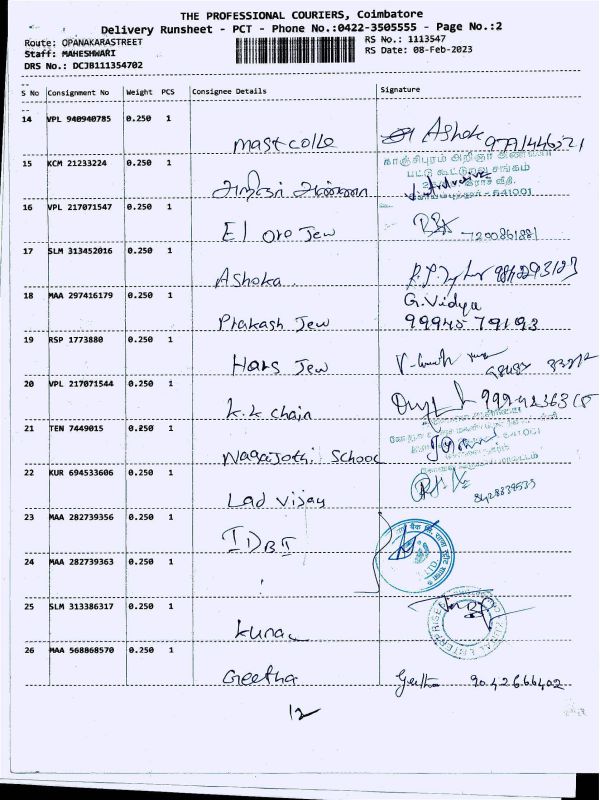 THE PROFESSIONAL COURIERS, Coimbatore
Delivery Runsheet - PCT - Phone No.:0422-3505555 - Page No.:2
Route: OPANAKARASTREET
Staff: MAHESHWARI
DRS No.: DCJB111354702
RS No.: 1113547
RS Date: 08-Feb-2023
S No Consignment No Weight PCS Consignee Details Signature
14 VPL 940940785 0.250 1 mast colle Ashok
15 KCM 21233224 0.250 1 அறிஞர் அண்ணா
காஞ்சிபுரம் அறிஞர் அண்ணா
பட்டு கூட்டுறவு சங்கம்
16 VPL 217071547 0.250 1 El oro Jew
17 SLM 313452016 0.250 1 Ashoka
18 MAA 297416179 0.250 1 Prakash Jew G.Vidya
99945 79193
19 RSP 1773880 0.250 1 Hars Jew
20 VPL 217071544 0.250 1 K.K chain
21 TEN 7449015 0.250 1 Nagajothi School
22 KUR 694533606 0.250 1 Lad Vijay
23 MAA 282739356 0.250 1 IDBI
24 MAA 282739363 0.250 1
25 SLM 313386317 0.250 1 Kunal
26 MAA 568868570 0.250 1 Geetha Geetha 9042666402
12